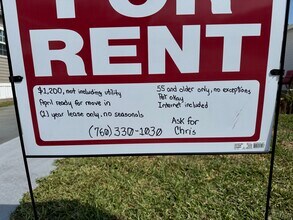 FOR
RENT
$1,200, not including utility
April ready for move in
(2) year lease only, no seasonals
55 and older only, no exceptions
Pet okay
Internet included
Ask for
Chris
(760)-330-1030